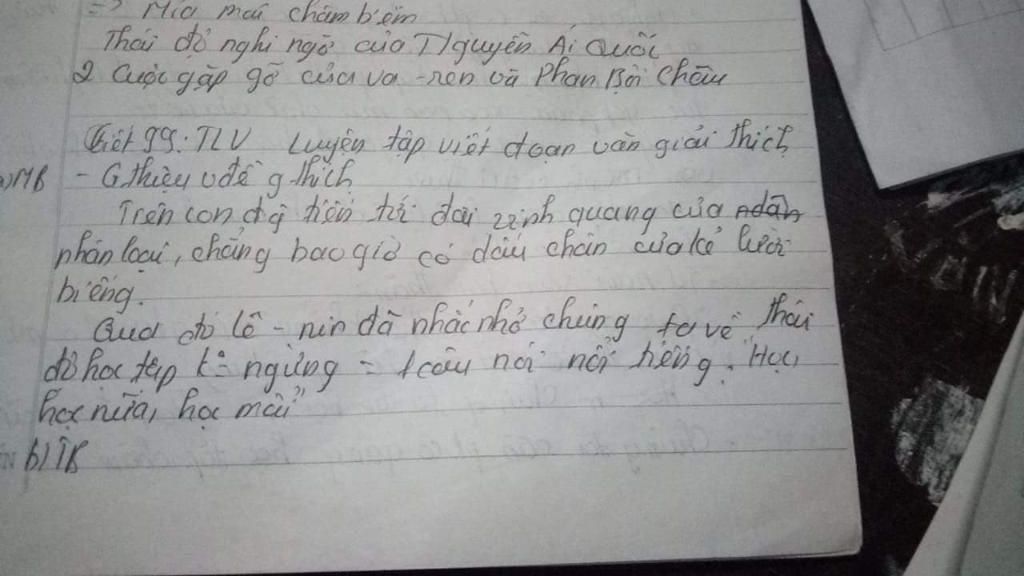 => Mỉa mai châm biếm
Thái độ nghi ngờ của Nguyễn Ái Quốc
2 Cuộc gặp gỡ của va-ren và Phan Bội Châu
Tiết 99: TLV Luyện tập viết đoạn văn giải thích
a) MB - Gthiệu vđề gthích
Trên con đg tiến tới đài vinh quang của nhân
nhân loại, chẳng bao giờ có dấu chân của kẻ lười
biếng.
Qua đó Lê-nin đã nhắc nhở chúng ta về thái
độ học tập k° ngừng = 1 câu nói nổi tiếng. "Học,
học nữa, học mãi"
b) TB